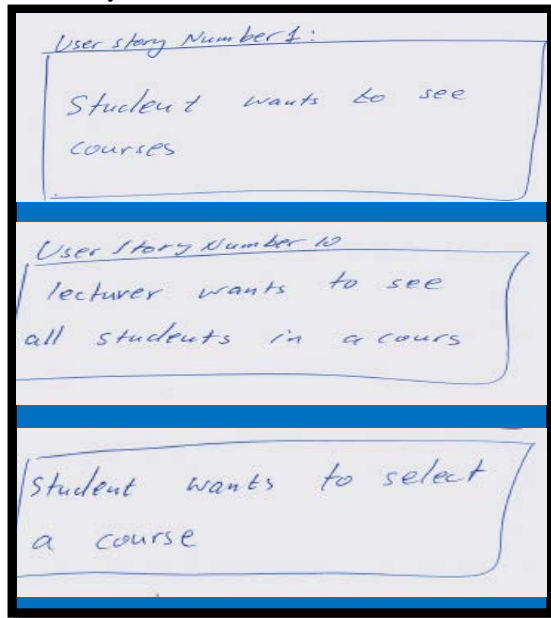 User story Number 1:
Student wants to see
courses
User Story Number 10
lecturer wants to see
all students in a cours
Student wants to select
a course